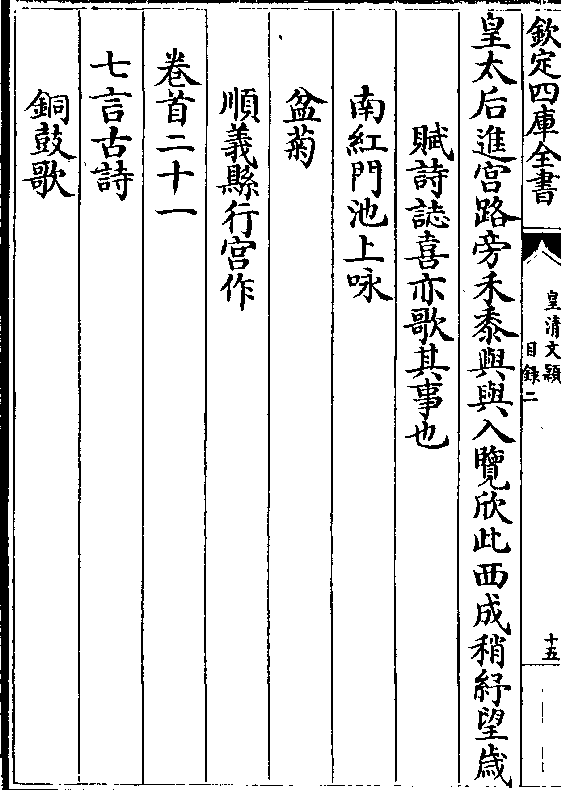 欽定四庫全書
皇清文穎
目錄二
十五
皇太后進宮路旁禾黍與與入覽欣此西成稍紓望歲
賦詩誌喜亦歌其事也
南紅門池上咏
盆菊
順義縣行宮作
卷首二十一
七言古詩
銅鼓歌